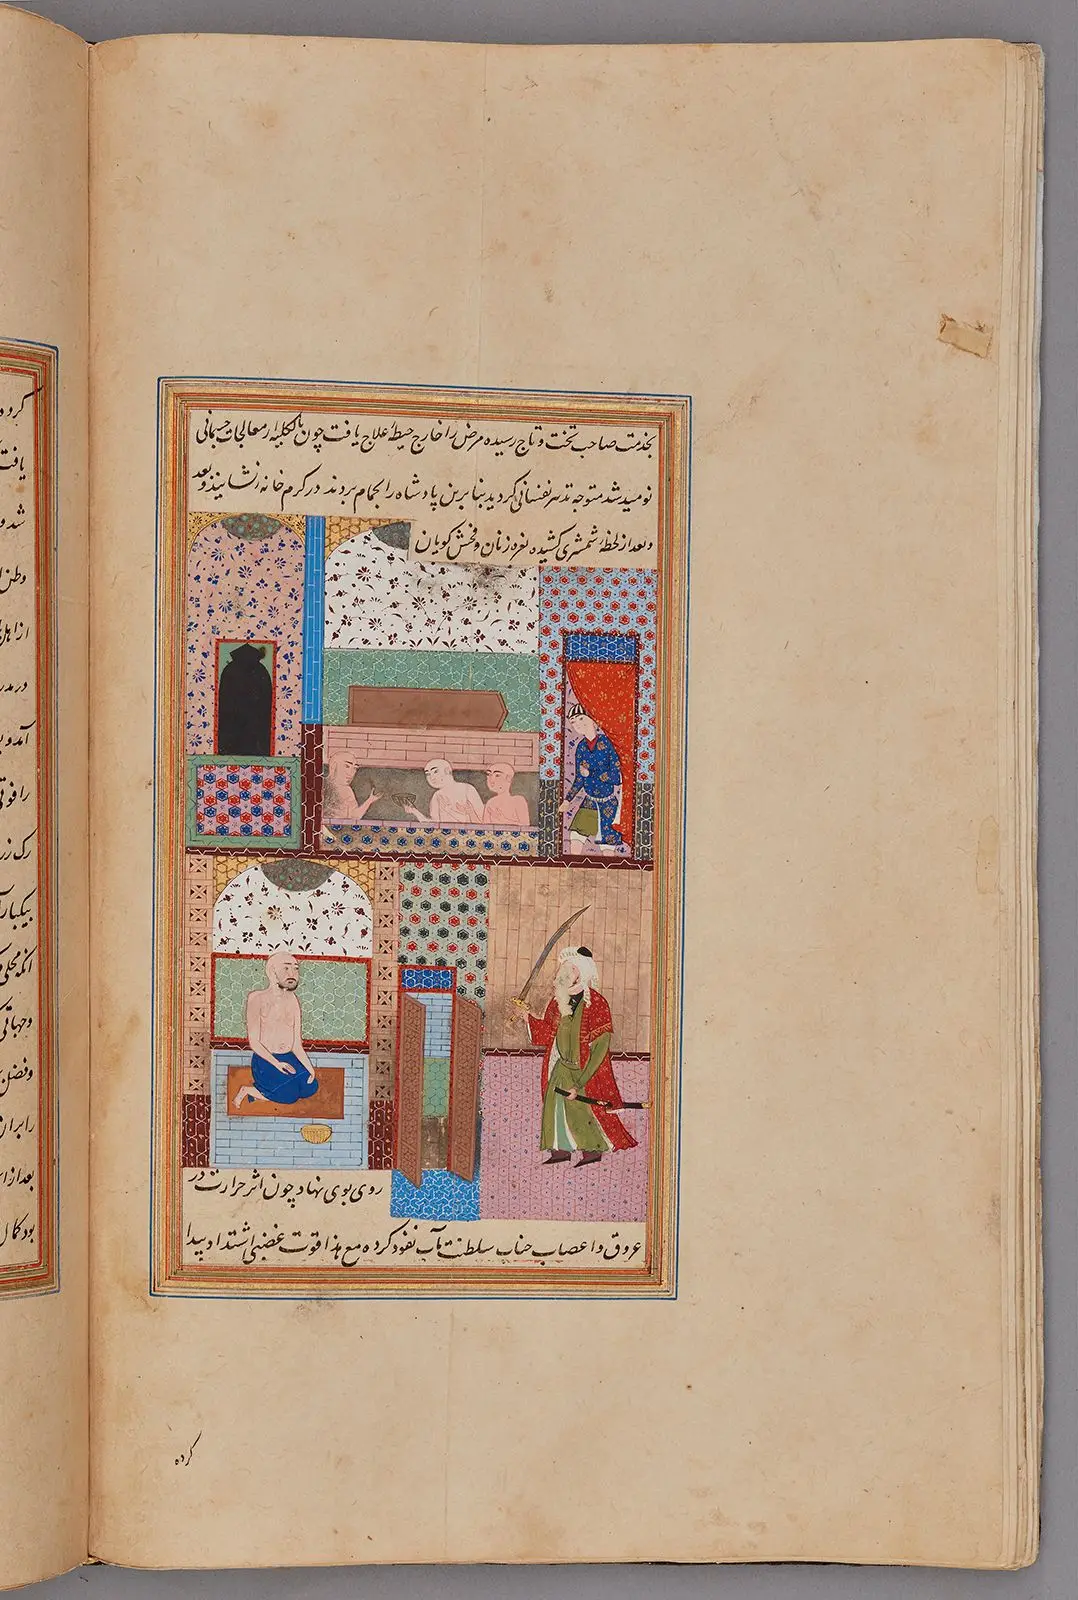 بخدمت صاحب تخت و تاج رسیده مرض را خارج حیطهٔ علاج یافت چون بالکلیه از معالجات جسمانی
نومید شد متوجه تدبیر نفسانی کردید بنا برین پادشاه را بحمام بردند در کرم خانه نشانیدند و بعد
و بعد از لحظهٔ شمشیری کشیده نعره زنان و فحش کویان
روی بوی نهاد چون اثر حرارت در
عروق و اعصاب جناب سلطنت مآب نفوذ کرده مع هذا قوت غضبی اشتداد پیدا
کرده
کرده
یافت
شد و
وطن
از اهل
در مدر
آمد و
را فوتی
رک زر
بیکبار
آنکه محلی
و جهاتی
و فضل
را بران
بعد از ا
بود کمال